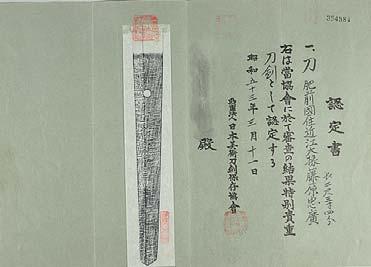 認定書
一、刀 肥前國住近江大掾藤原忠廣
長二尺三寸四分
右は當協會に於て審査の結果特別貴重
刀剣として認定する
昭和五十三年三月十一日
財團法人日本美術刀剣保存協會
殿